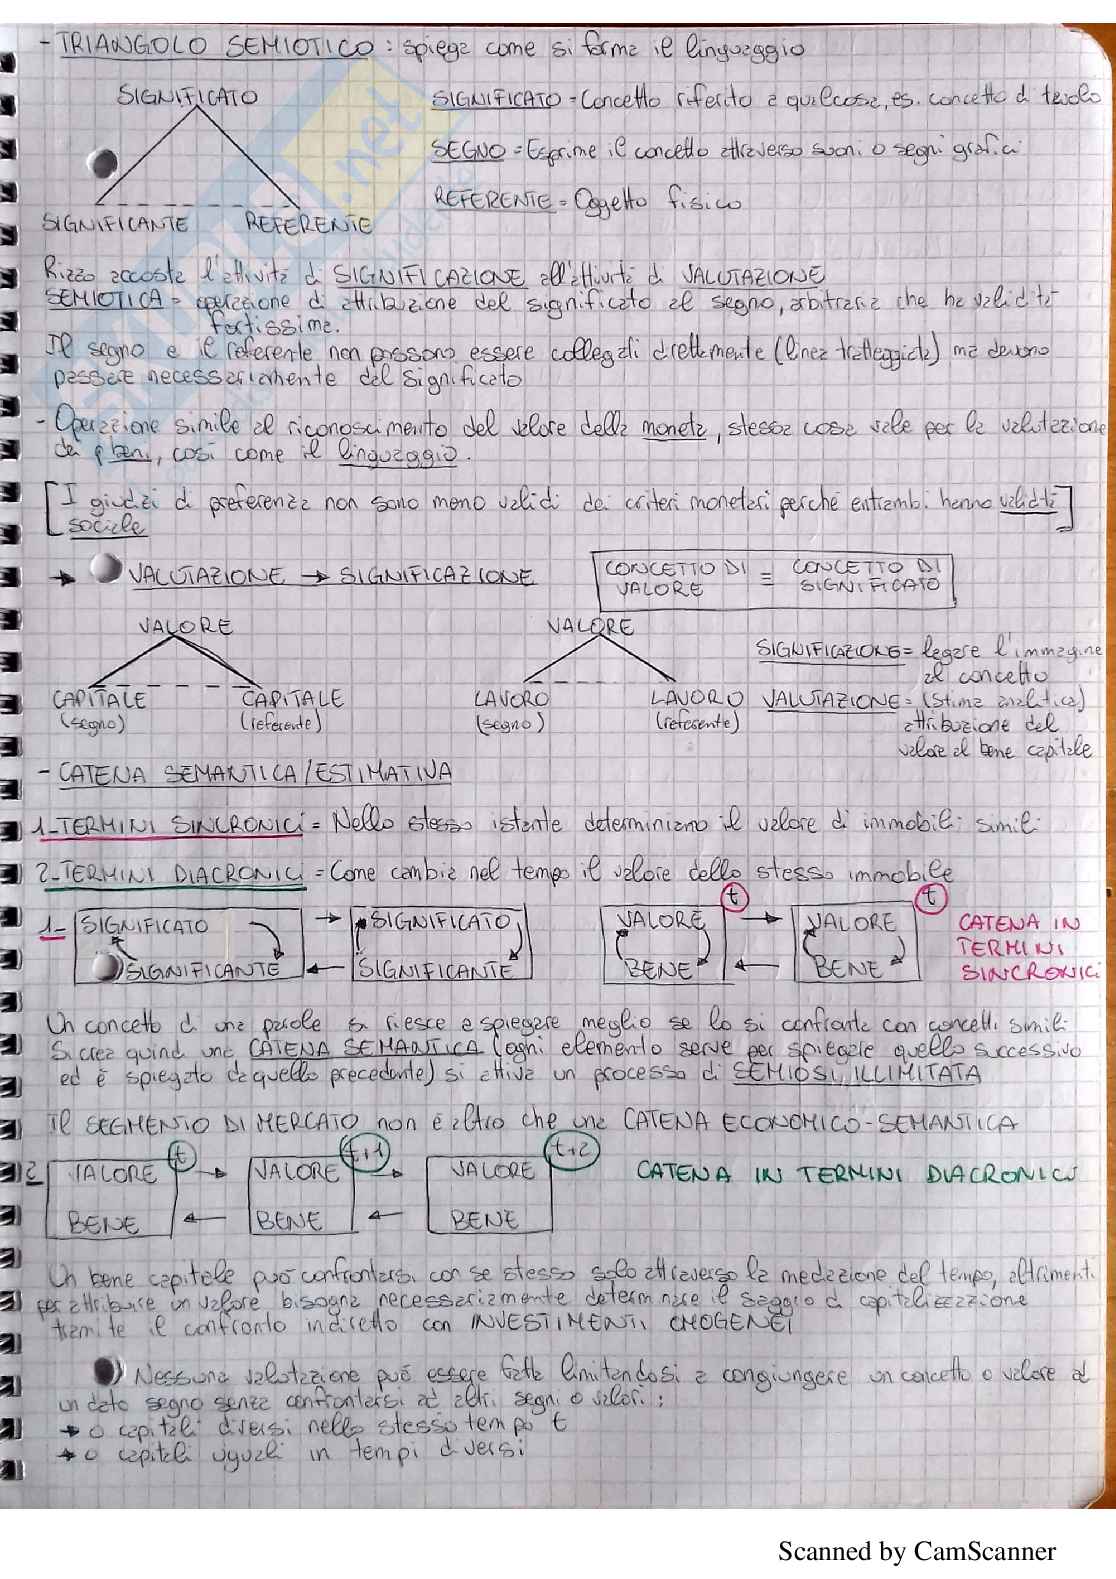 - TRIANGOLO SEMIOTICO: spiega come si forma il linguaggio
SIGNIFICATO
SIGNIFICANTE REFERENTE
SIGNIFICATO = Concetto riferito a qualcosa, es. concetto di tavolo
SEGNO = Esprime il concetto attraverso suoni o segni grafici
REFERENTE = Oggetto fisico
Rizzo accosta l'attività di SIGNIFICAZIONE all'attività di VALUTAZIONE
SEMIOTICA = operazione di attribuzione del significato al segno, arbitraria che ha validità
fortissima.
Il segno e il referente non possono essere collegati direttamente (linea tratteggiata) ma devono
passare necessariamente dal significato
- Operazione simile al riconoscimento del valore della moneta, stessa cosa vale per la valutazione
dei beni, così come il linguaggio.
[I giudizi di preferenza non sono meno validi dei criteri monetari perché entrambi hanno validità
sociale]
→ VALUTAZIONE → SIGNIFICAZIONE
CONCETTO DI VALORE = CONCETTO DI SIGNIFICATO
VALORE
CAPITALE (segno) CAPITALE (referente)
VALORE
LAVORO (segno) LAVORO (referente)
SIGNIFICAZIONE = legare l'immagine
al concetto
VALUTAZIONE = (Stima analitica)
attribuzione del
valore al bene capitale
- CATENA SEMANTICA/ESTIMATIVA
1-TERMINI SINCRONICI = Nello stesso istante determiniamo il valore di immobili simili
2-TERMINI DIACRONICI = Come cambia nel tempo il valore dello stesso immobile
1- SIGNIFICATO → SIGNIFICATO
SIGNIFICANTE ← SIGNIFICANTE
VALORE t → VALORE t
BENE ← BENE
CATENA IN
TERMINI
SINCRONICI
Un concetto di una parola si riesce a spiegare meglio se lo si confronta con concetti simili
Si crea quindi una CATENA SEMANTICA (ogni elemento serve per spiegare quello successivo
ed è spiegato da quello precedente) si attiva un processo di SEMIOSI ILLIMITATA
Il SEGMENTO DI MERCATO non è altro che una CATENA ECONOMICO-SEMANTICA
2 VALORE t → VALORE t+1 → VALORE t+2
BENE ← BENE ← BENE
CATENA IN TERMINI DIACRONICI
Un bene capitale può confrontarsi con se stesso solo attraverso la mediazione del tempo, altrimenti
per attribuire un valore bisogna necessariamente determinare il saggio di capitalizzazione
tramite il confronto indiretto con INVESTIMENTI OMOGENEI
Nessuna valutazione può essere fatta limitandosi a congiungere un concetto o valore ad
un dato segno senza confrontarsi ad altri segni o valori:
→ o capitali diversi nello stesso tempo t
→ o capitali uguali in tempi diversi
Scanned by CamScanner